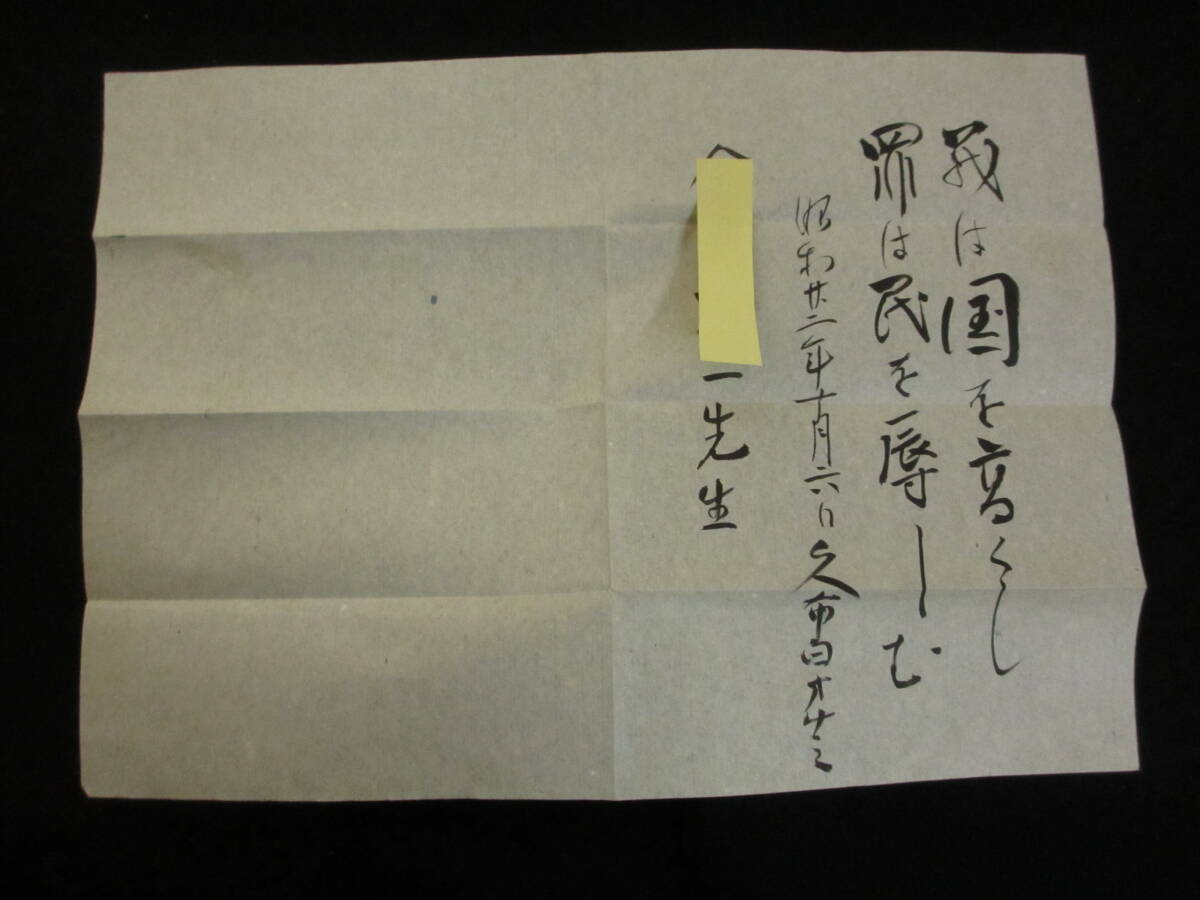 義は国を高くし
罪は民を辱しむ
昭和廿二年十月六日 久布白オチミ
一先生